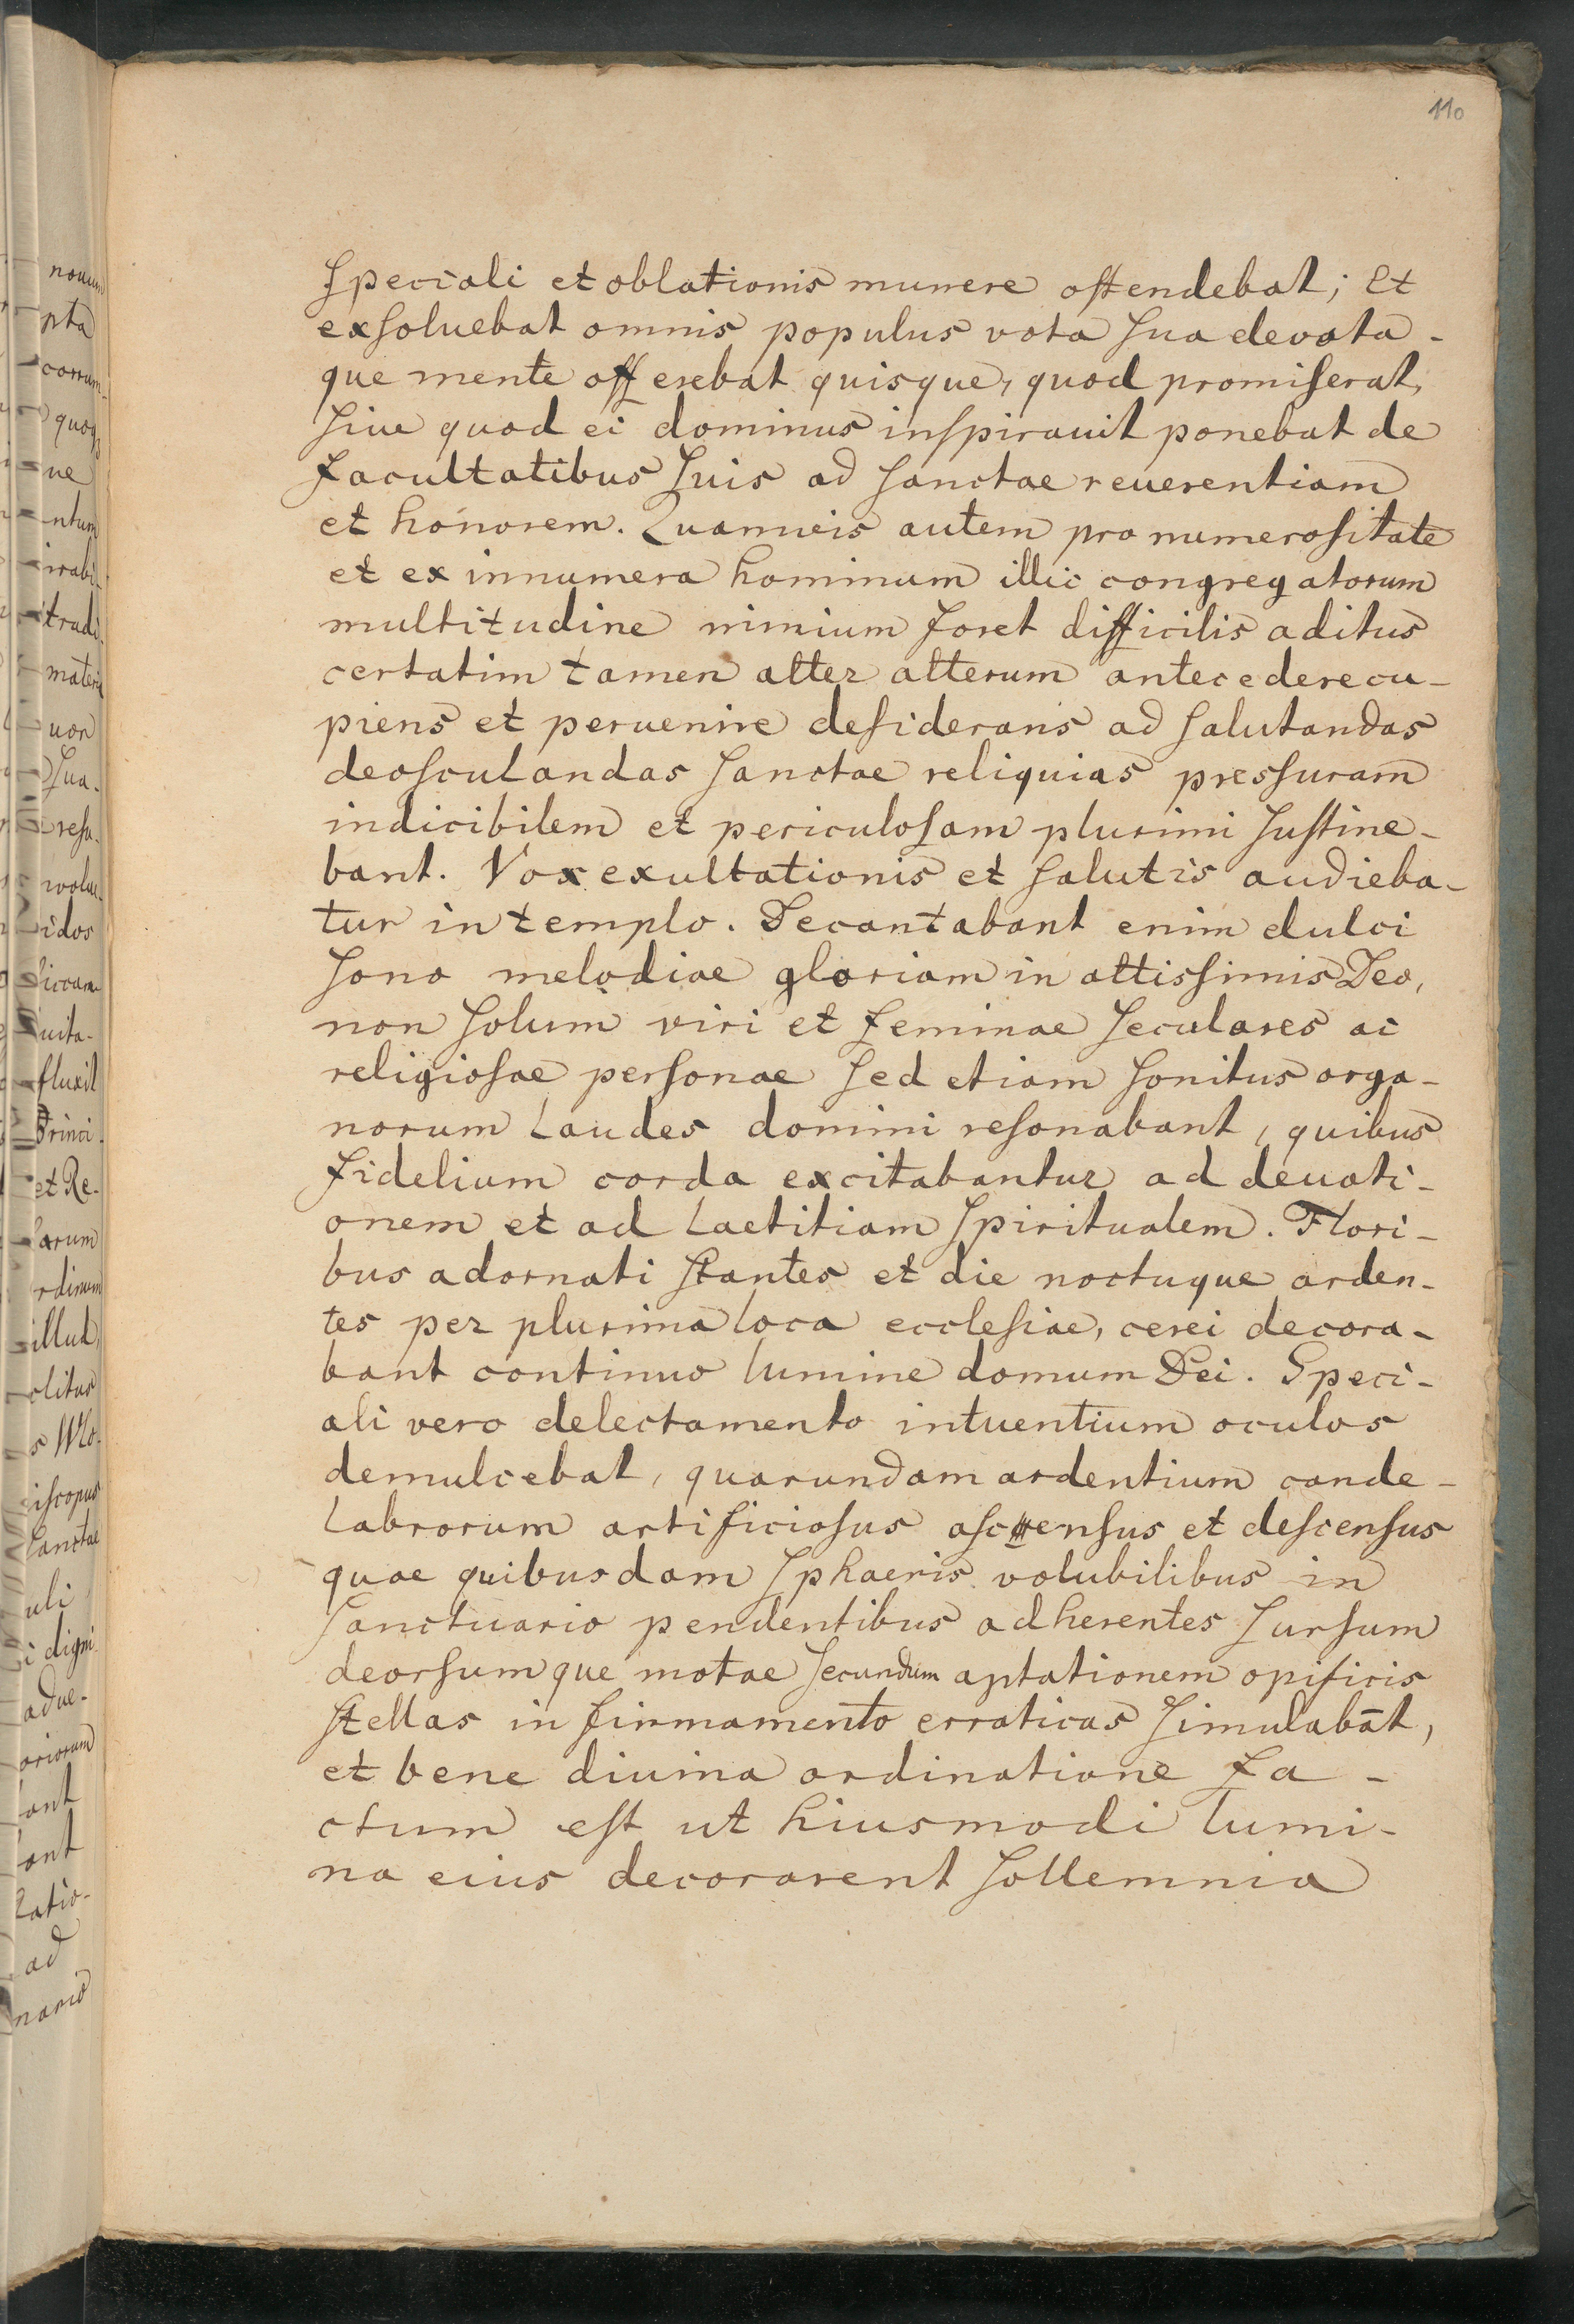 110
ſpeciali et oblationis munere oſtendebat; Et
exſoluebat omnis populus vota ſua devota-
que mente offerebat quisque, quod promiſerat,
ſiue quod ei dominus inſpirauit ponebat de
facultatibus ſuis ad ſanctae reuerentiam
et honorem. Quamuis autem pro numeroſitate
et ex innumera hominum illic congregatorum
multitudine nimium foret difficilis aditus
certatim tamen alter alterum antecedere cu-
piens et peruenire deſiderans ad ſalutandas
deoſculandas ſanctae reliquias presſuram
indicibilem et periculoſam plurimi ſuſtine-
bant. Vox exultationis et ſalutis audieba-
tur in templo. Decantabant enim dulci
ſono melodiae gloriam in altisſimis Deo,
non ſolum viri et feminae ſeculares ac
religioſae perſonae ſed etiam ſonitus orga-
norum laudes domini reſonabant, quibus
fidelium corda excitabantur ad deuoti-
onem et ad laetitiam ſpiritualem. Flori-
bus adornati ſtantes et die noctuque arden-
tes per plurima loca eccleſiae, cerei decora-
bant continuo lumine domum Dei. Speci-
ali vero delectamento intuentium oculos
demulcebat, quarundam ardentium cande-
labrorum artificioſus aſcenſus et deſcenſus
quae quibusdam ſphaeris volubilibus in
ſanctuario pendentibus adherentes ſurſum
deorſumque motae ſecundum aptationem opificis
ſtellas in firmamento erraticas ſimulabāt,
et bene diuina ordinatione fa-
ctum eſt ut hiusmodi lumi-
na eius decorarent ſollemnia